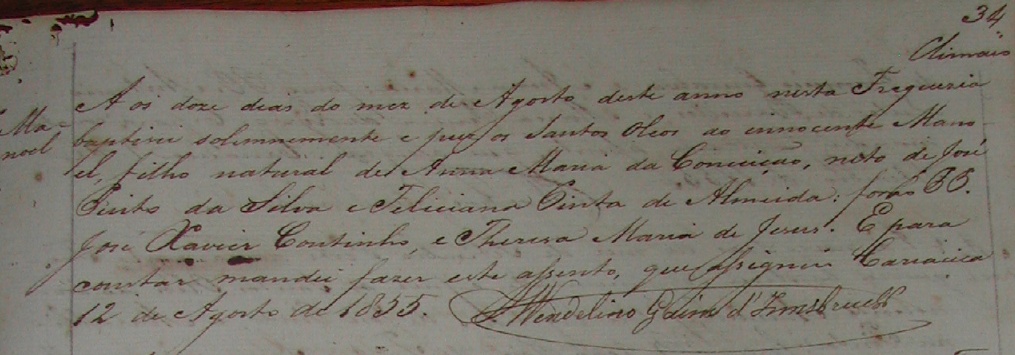 34
Ma-
noel
Aos doze dias do mez de Agosto deste anno nesta Freguezia
baptisei solemnemente e puz os Santos Oleos ao innocente Mano
el, filho natural de Anna Maria da Conceição, neto de José
Pinto da Silva e Feliciana Pinta de Almeida: forão PP.
José Xavier Coutinho, e Theresa Maria de Jesus. E para
constar mandei fazer este assento, que assignei Cariacica
12 de Agosto de 1855. Wendelino